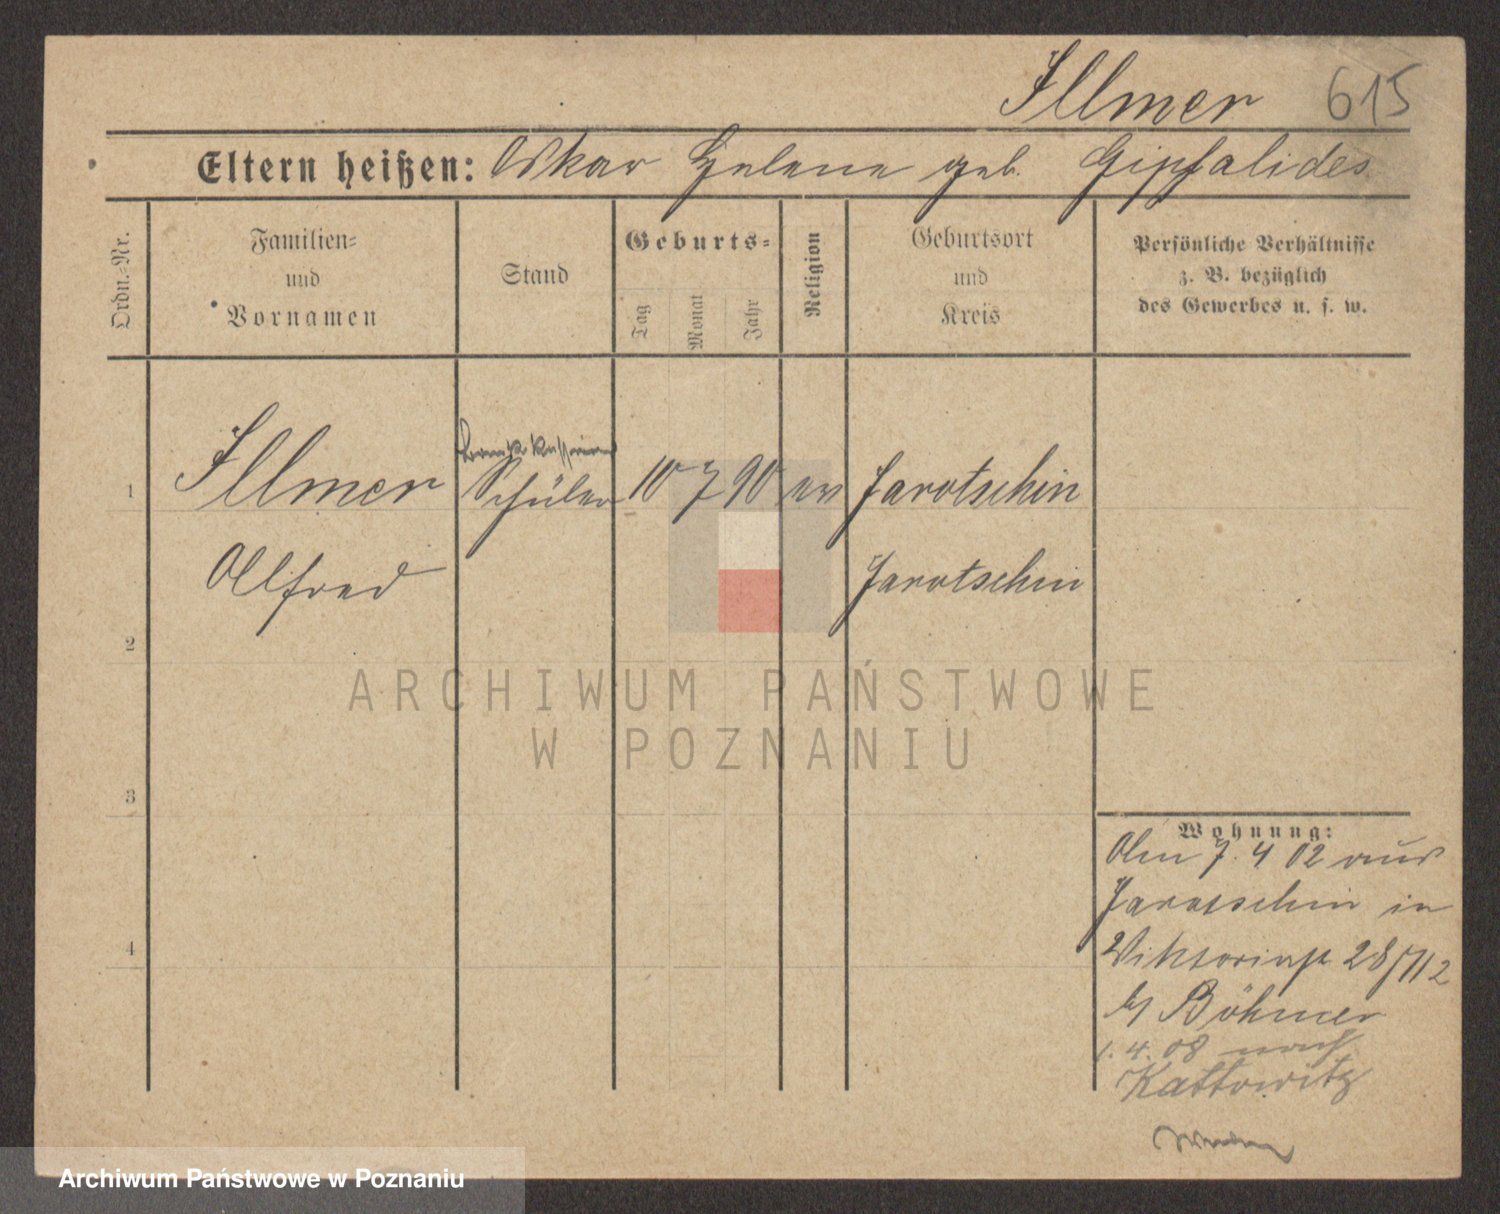 Illmer 615
Eltern heißen: Oskar Helene geb. Gipsalides
Ordn.-Nr.
Familien-
und
Vornamen
Stand
Geburts-
Tag
Monat
Jahr
Religion
Geburtsort
und
Kreis
Persönliche Verhältnisse
z. B. bezüglich
des Gewerbes u. s. w.
1 Illmer Schüler 10 7 90 ev Jarotschin
Alfred Jarotschin
2
3
4
Wohnung:
Am 7. 4 02 aus
Jarotschin in
Viktoriastr. 28/II 2
b/ Böhmer
1. 4. 08 nach
Kattowitz
ARCHIWUM PAŃSTWOWE
W POZNANIU
Archiwum Państwowe w Poznaniu